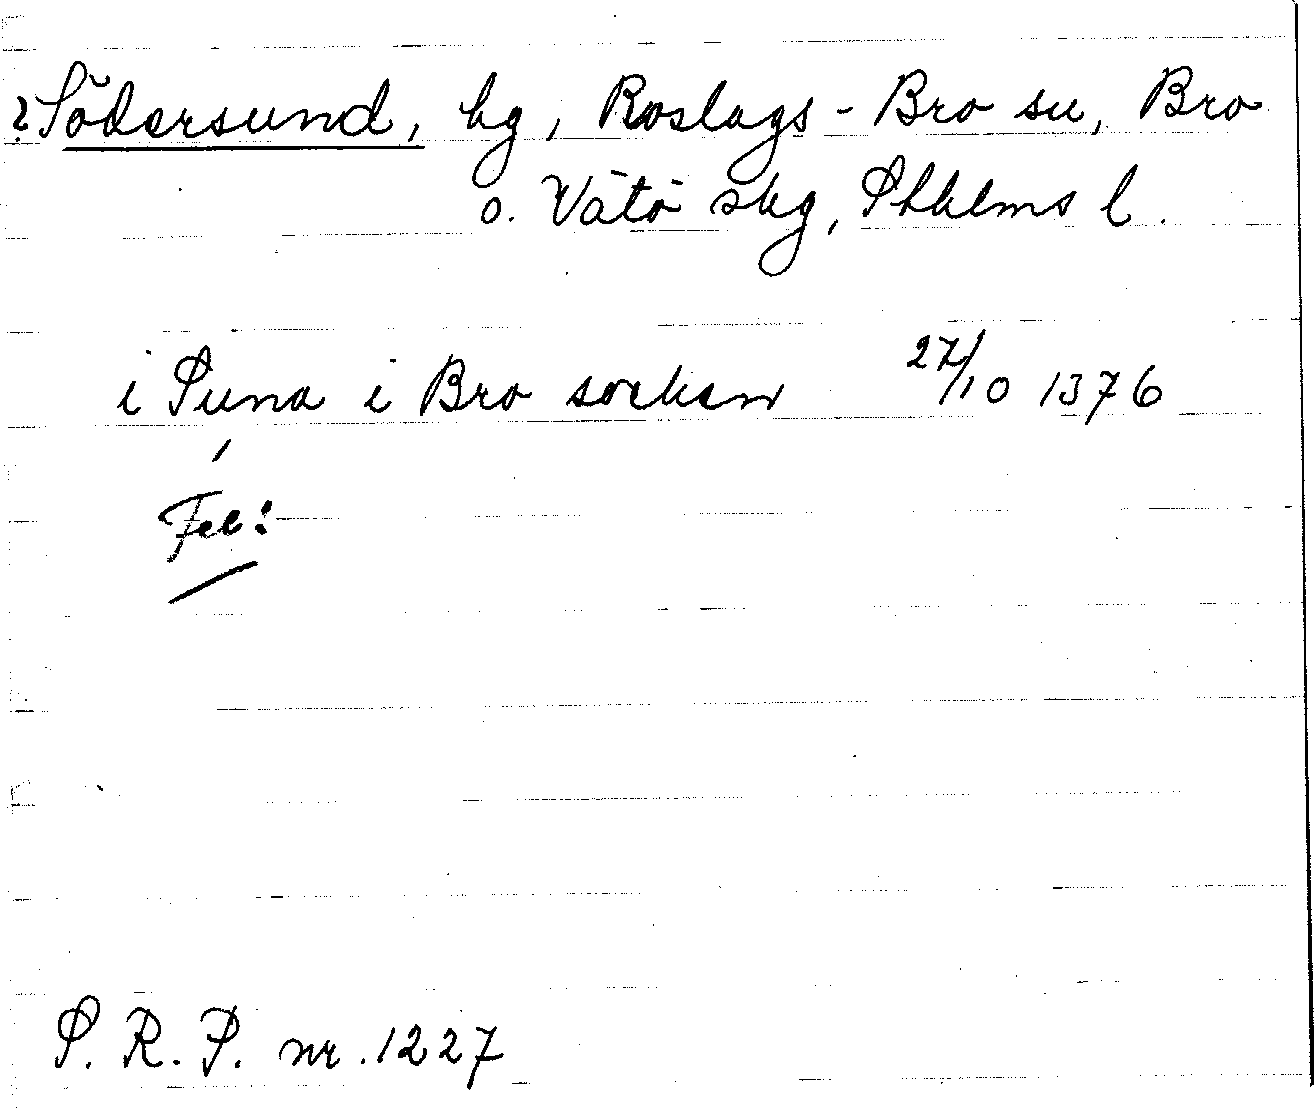 ? Södersund, by, Roslags-Bro sn, Bro
o. Vätö skg, Sthlms l.
i Suna i Bro socken 27/10 1376
Fel!
S. R. P. nr. 1227